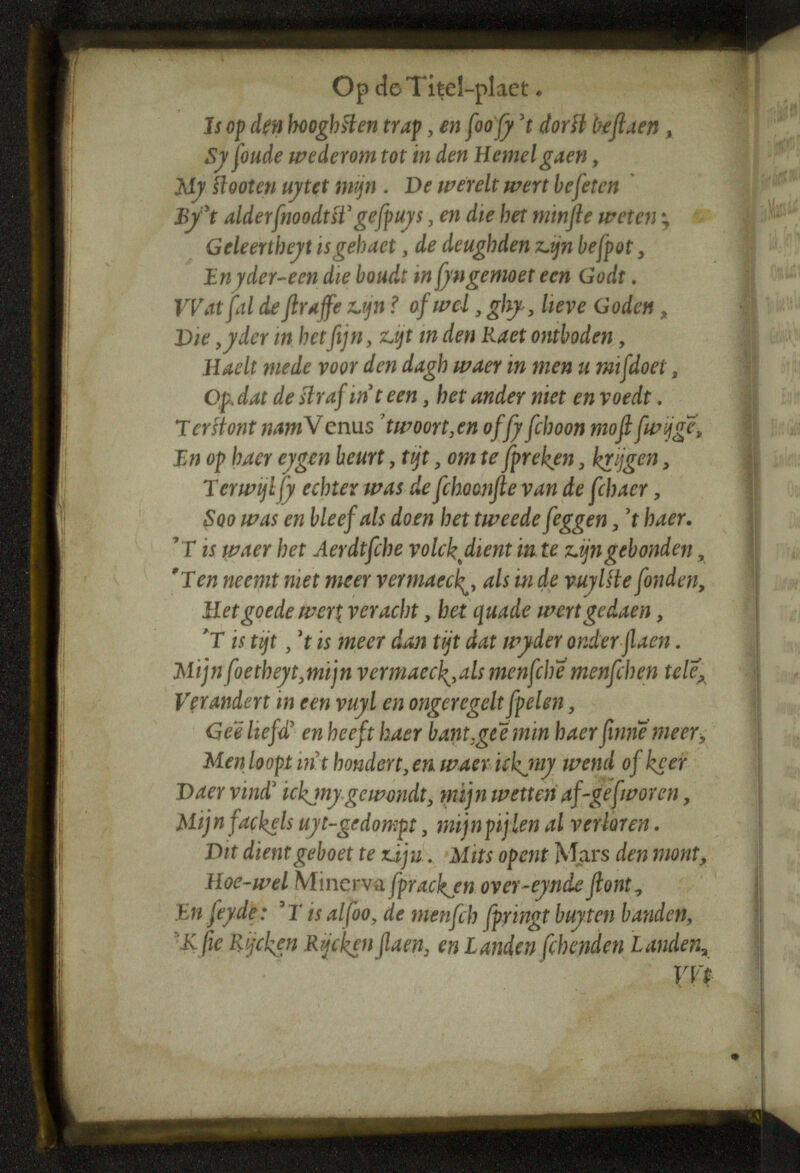 Op de Titel-plaet.
Is op den hooghsten trap, en soo sy 't dorst bestaen,
Sy soude wederom tot in den Hemel gaen,
My slooten uytet mijn. De werelt wert beseten
By't aldersnoodtst' gespuys, en die het minste weten;
Geleertheyt is gehaet, de deughden zijn bespot,
En yder-een die houdt in syn gemoet een Godt.
VVat sal de straffe zijn? of wel, ghy, lieve Goden,
Die, yder in het sijn, zijt in den Raet ontboden,
Haelt mede voor den dagh waer in men u misdoet,
Op dat de straf in't een, het ander niet en voedt.
Terstont nam Venus 'twoort, en of sy schoon most swijgē,
En op haer eygen beurt, tijt, om te spreken, krijgen,
Terwijl sy echter was de schoonste van de schaer,
Soo was en bleef als doen het tweede seggen, 't haer.
'T is waer het Aerdtsche volck dient in te zijn gebonden,
'Ten neemt niet meer vermaeck, als in de vuylste sonden,
Het goede wert veracht, het quade wert gedaen,
'T is tijt, 't is meer dan tijt dat wyder onder slaen.
Mijn soetheyt, mijn vermaeck, als menschē menschen telē,
Verandert in een vuyl en ongeregelt spelen,
Geē liefd' en heeft haer bant, geē min haer sinnē meer,
Men loopt in't hondert, en waer ick my wend of keer
Daer vind' ick my gewondt, mijn wetten af-gesworen,
Mijn fackels uyt-gedompt, mijn pijlen al verloren.
Dit dient geboet te zijn. Mits opent Mars den mont,
Hoe-wel Minerva spracken over-eynde stont,
En seyde: 'T is alsoo, de mensch springt buyten banden,
'K sie Rijcken Rijcken slaen, en Landen schenden Landen,
VVt